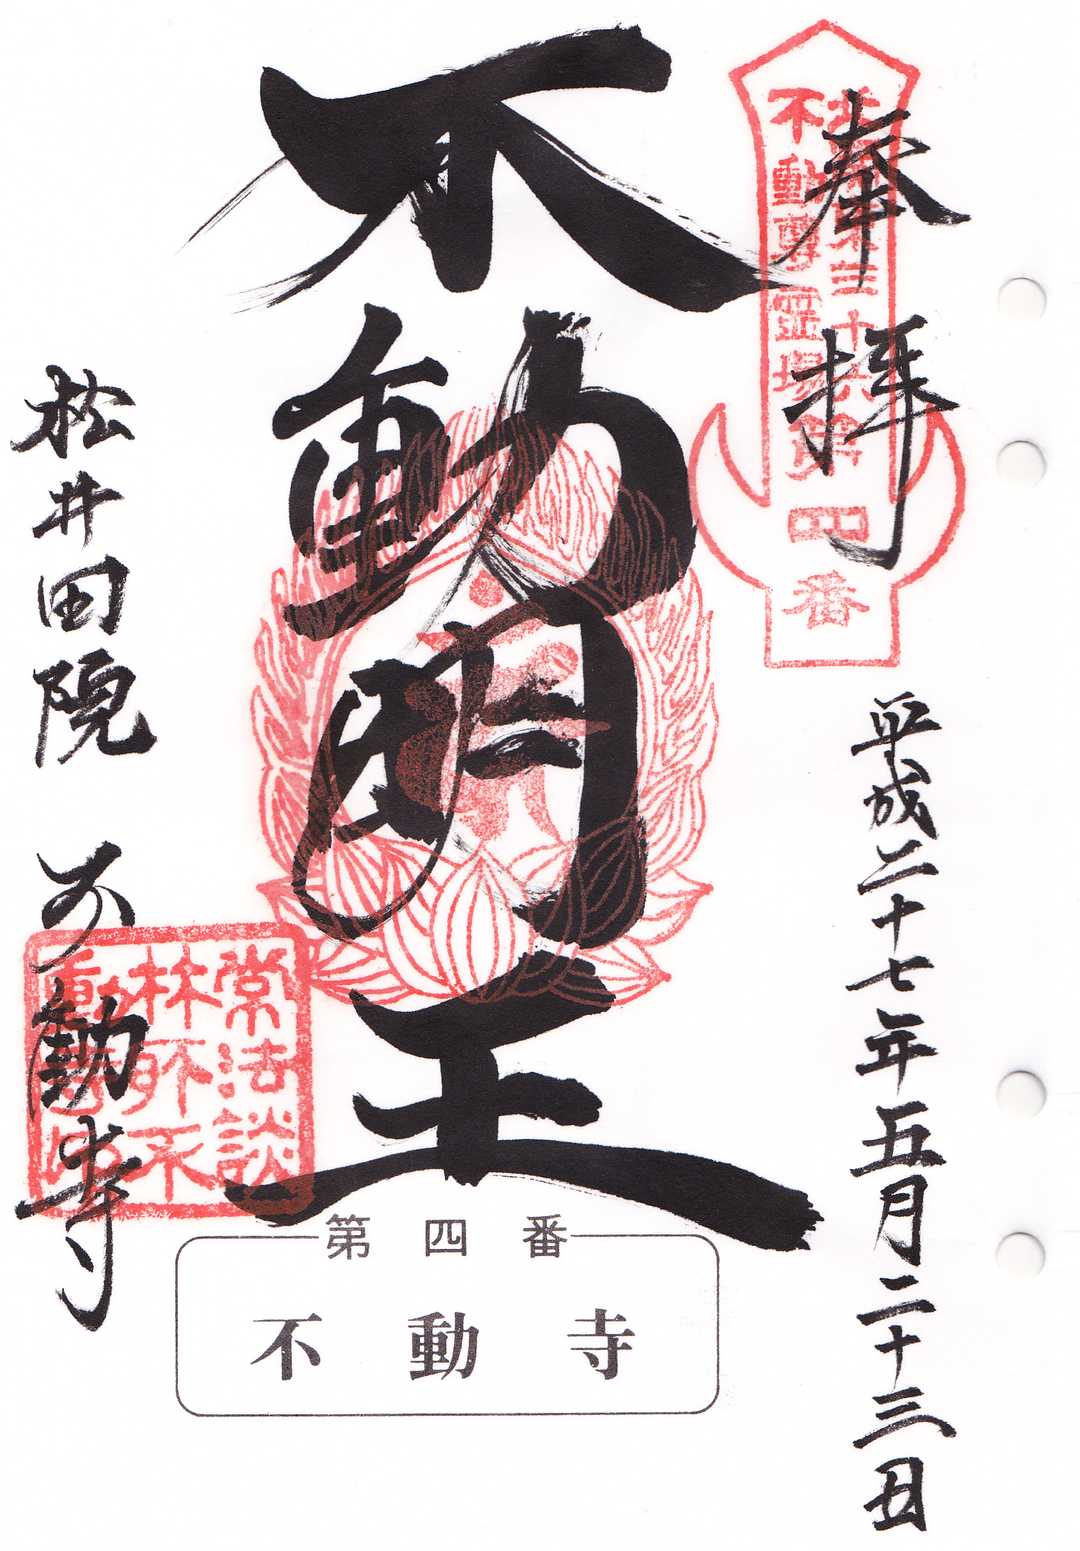 奉拝
北関東三十六
不動尊霊場第
四
番
平成二十七年五月二十三日
不動明王
松井田院 不動寺
常法談
林所不
動寺印
第四番
不動寺